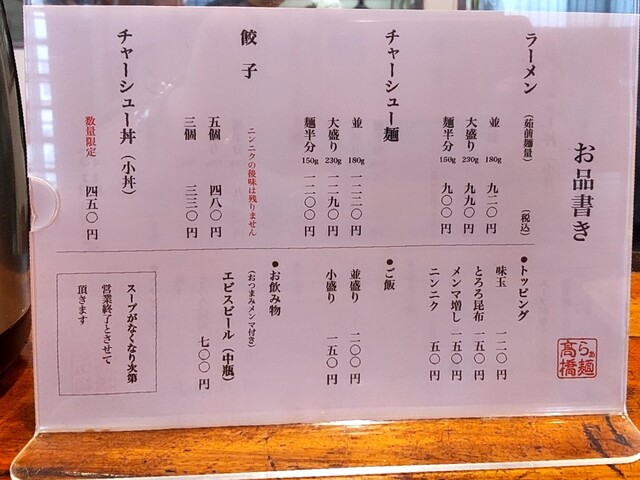 お品書き
らぁ麺
髙橋
ラーメン
(茹前麺量) (税込)
並 180g 九二〇円
大盛り 230g 九九〇円
麺半分 150g 九〇〇円
チャーシュー麺
並 180g 一二二〇円
大盛り 230g 一二九〇円
麺半分 150g 一二〇〇円
餃子
ニンニクの後味は残りません
五個 四八〇円
三個 三三〇円
チャーシュー丼(小丼)
数量限定 四五〇円
●トッピング
味玉 一二〇円
とろろ昆布 一五〇円
メンマ増し 一五〇円
ニンニク 五〇円
●ご飯
並盛り 二〇〇円
小盛り 一五〇円
●お飲み物
(おつまみメンマ付き)
エビスビール(中瓶)
七〇〇円
スープがなくなり次第
営業終了とさせて
頂きます